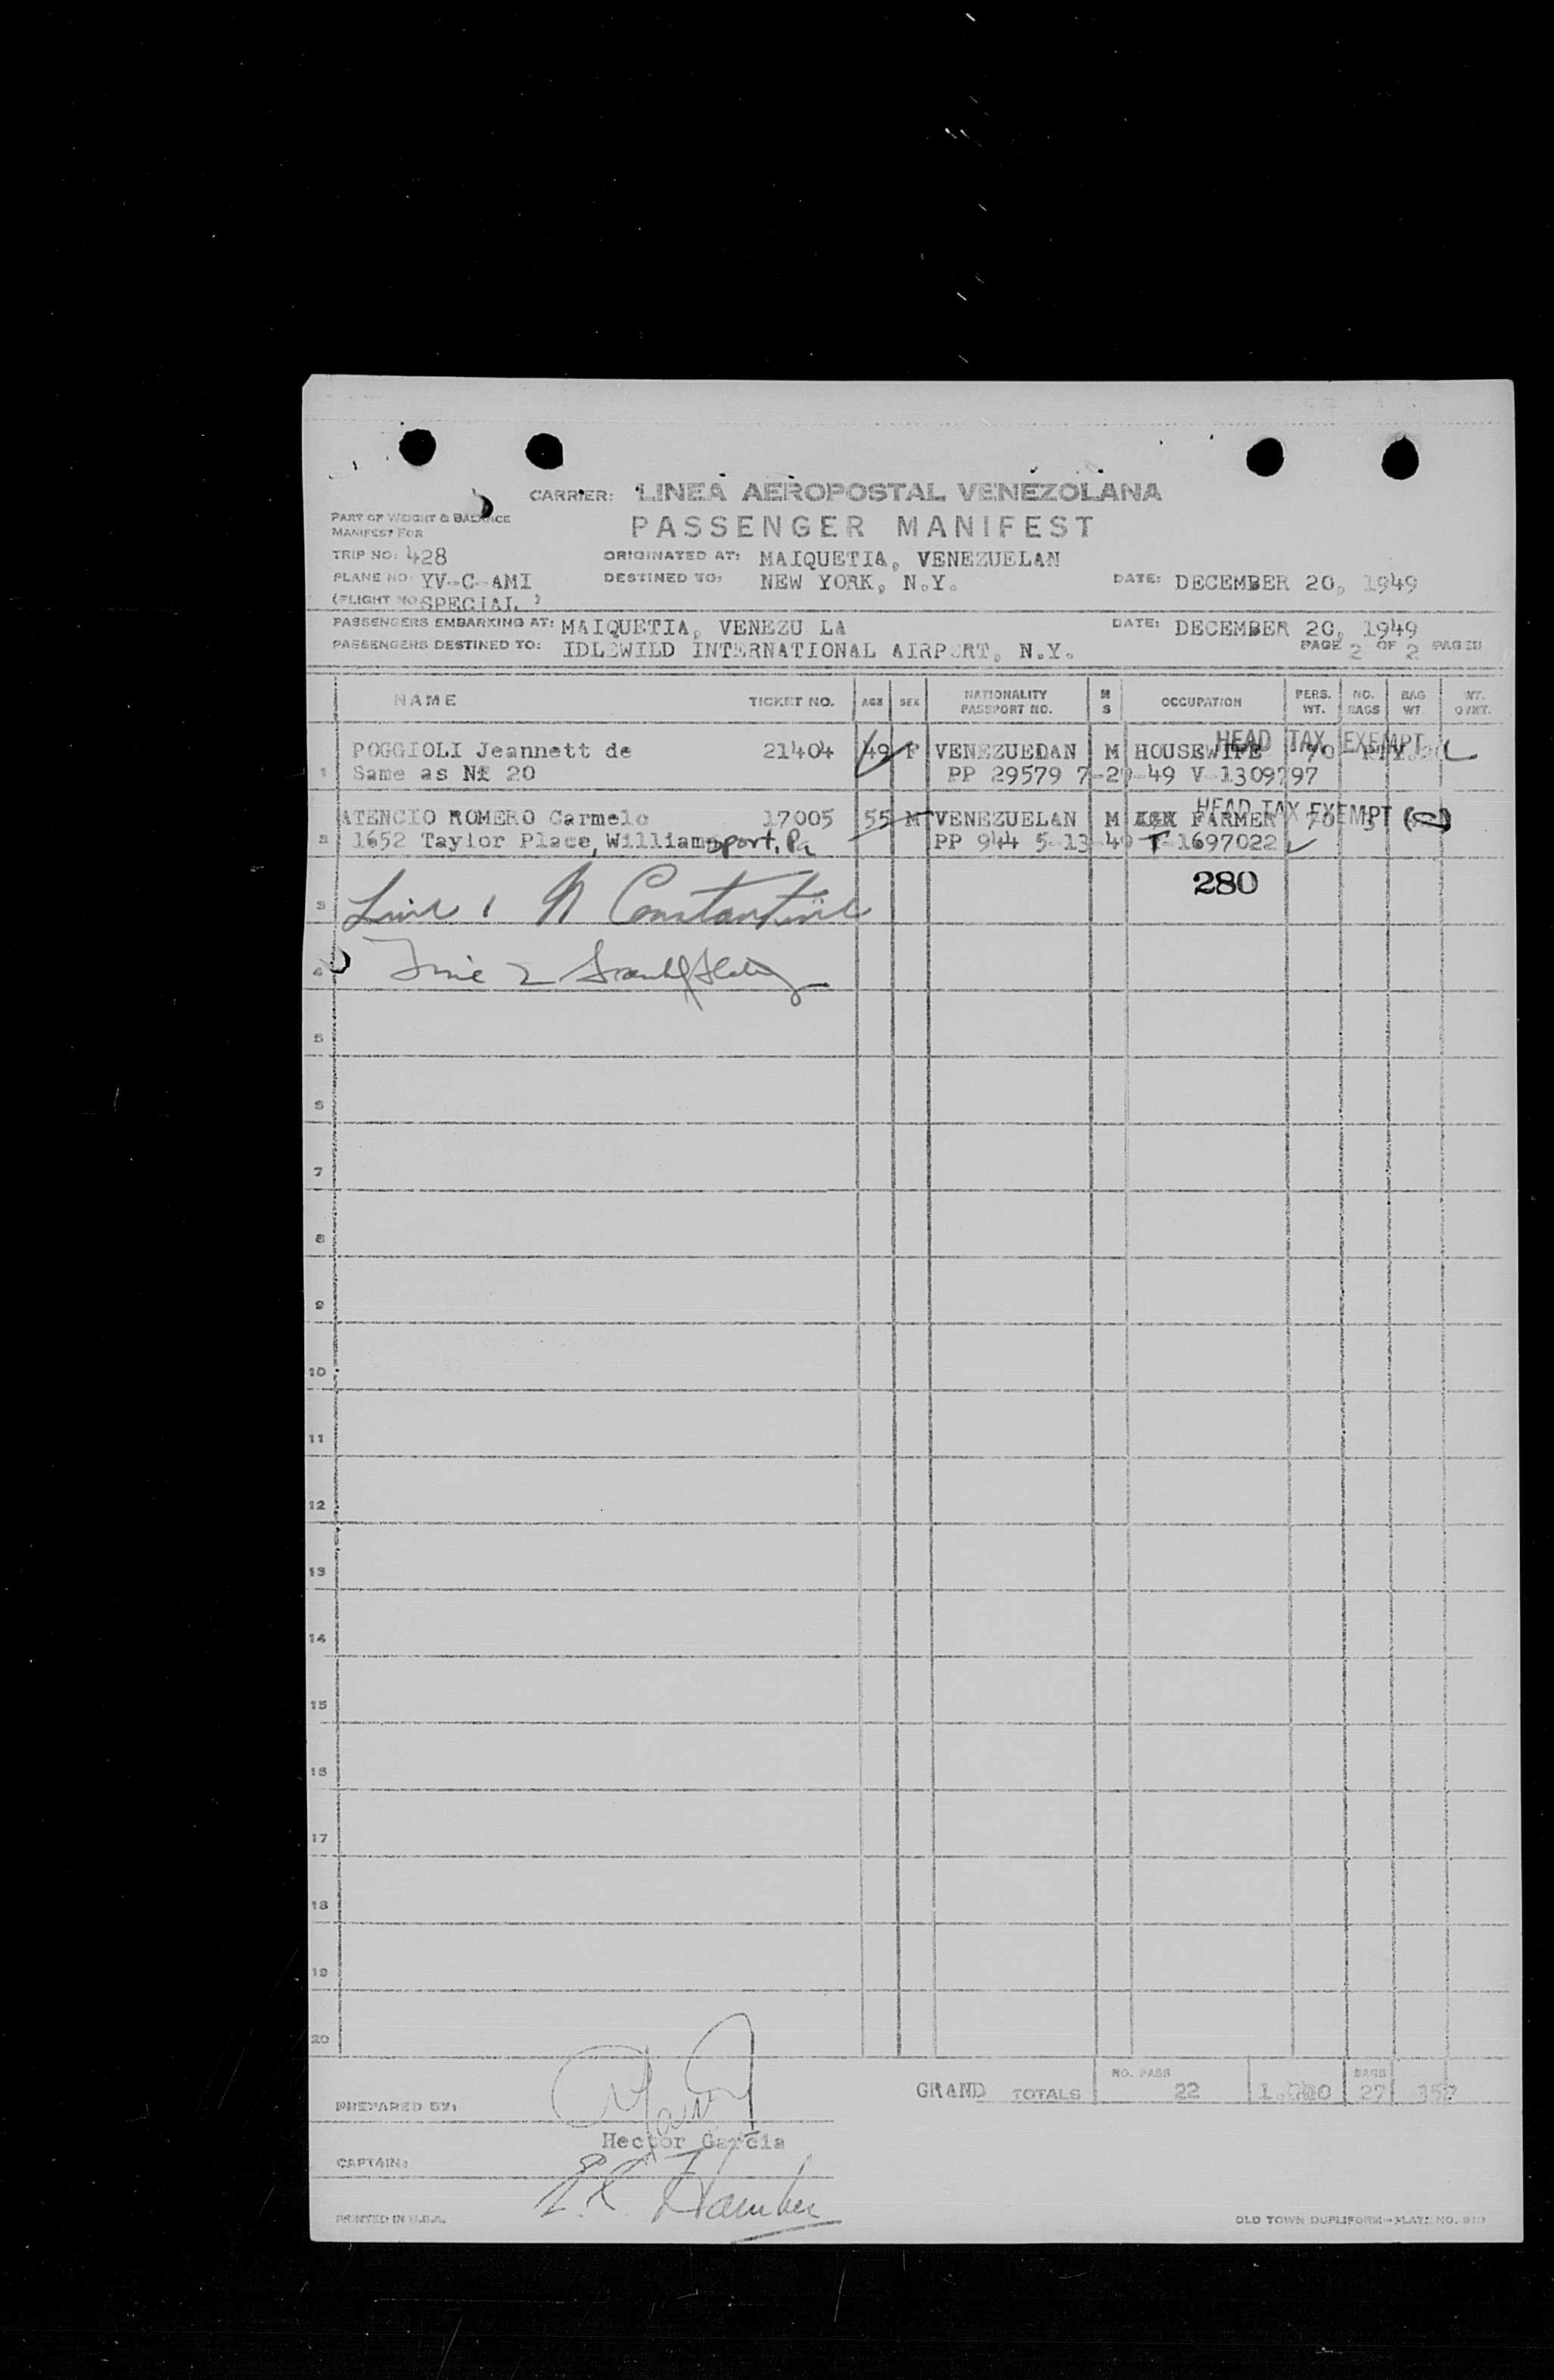 CARRIER: LINEA AEROPOSTAL VENEZOLANA
PART OF WEIGHT & BALANCE
MANIFEST FOR
PASSENGER MANIFEST
TRIP NO: 428
ORIGINATED AT: MAIQUETIA, VENEZUELAN
PLANE NO: YV-C-AMI
DESTINED TO: NEW YORK, N.Y.
DATE: DECEMBER 20, 1949
(FLIGHT NO. SPECIAL )
PASSENGERS EMBARKING AT: MAIQUETIA, VENEZU LA
DATE: DECEMBER 20, 1949
PASSENGERS DESTINED TO: IDLEWILD INTERNATIONAL AIRPORT, N.Y.
PAGE 2 OF 2 PAGES
NAME TICKET NO. AGE SEX NATIONALITY PASSPORT NO. M S OCCUPATION PERS. WT. NO. BAGS BAG WT. WT. OVWT.
HEAD TAX EXEMPT
POGGIOLI Jeannett de 21404 49 F VENEZUELAN M HOUSEWIFE 70
1 Same as Nº 20 PP 29579 7-29-49 V-1309797
HEAD TAX EXEMPT
ATENCIO ROMERO Carmelo 17005 55 M VENEZUELAN M FARMER 70 3
2 1652 Taylor Place, Williamsport, Pa PP 944 5-13-49 T-1697022
280
3 Line 1 N Constantine
4 Line 2
5
6
7
8
9
10
11
12
13
14
15
16
17
18
19
20
GRAND TOTALS NO. PASS 22 BAGS 27 357
PREPARED BY:
Hector Garcia
CAPTAIN:
PRINTED IN U.S.A.
OLD TOWN DUPLIFORM-MAT: NO. 910